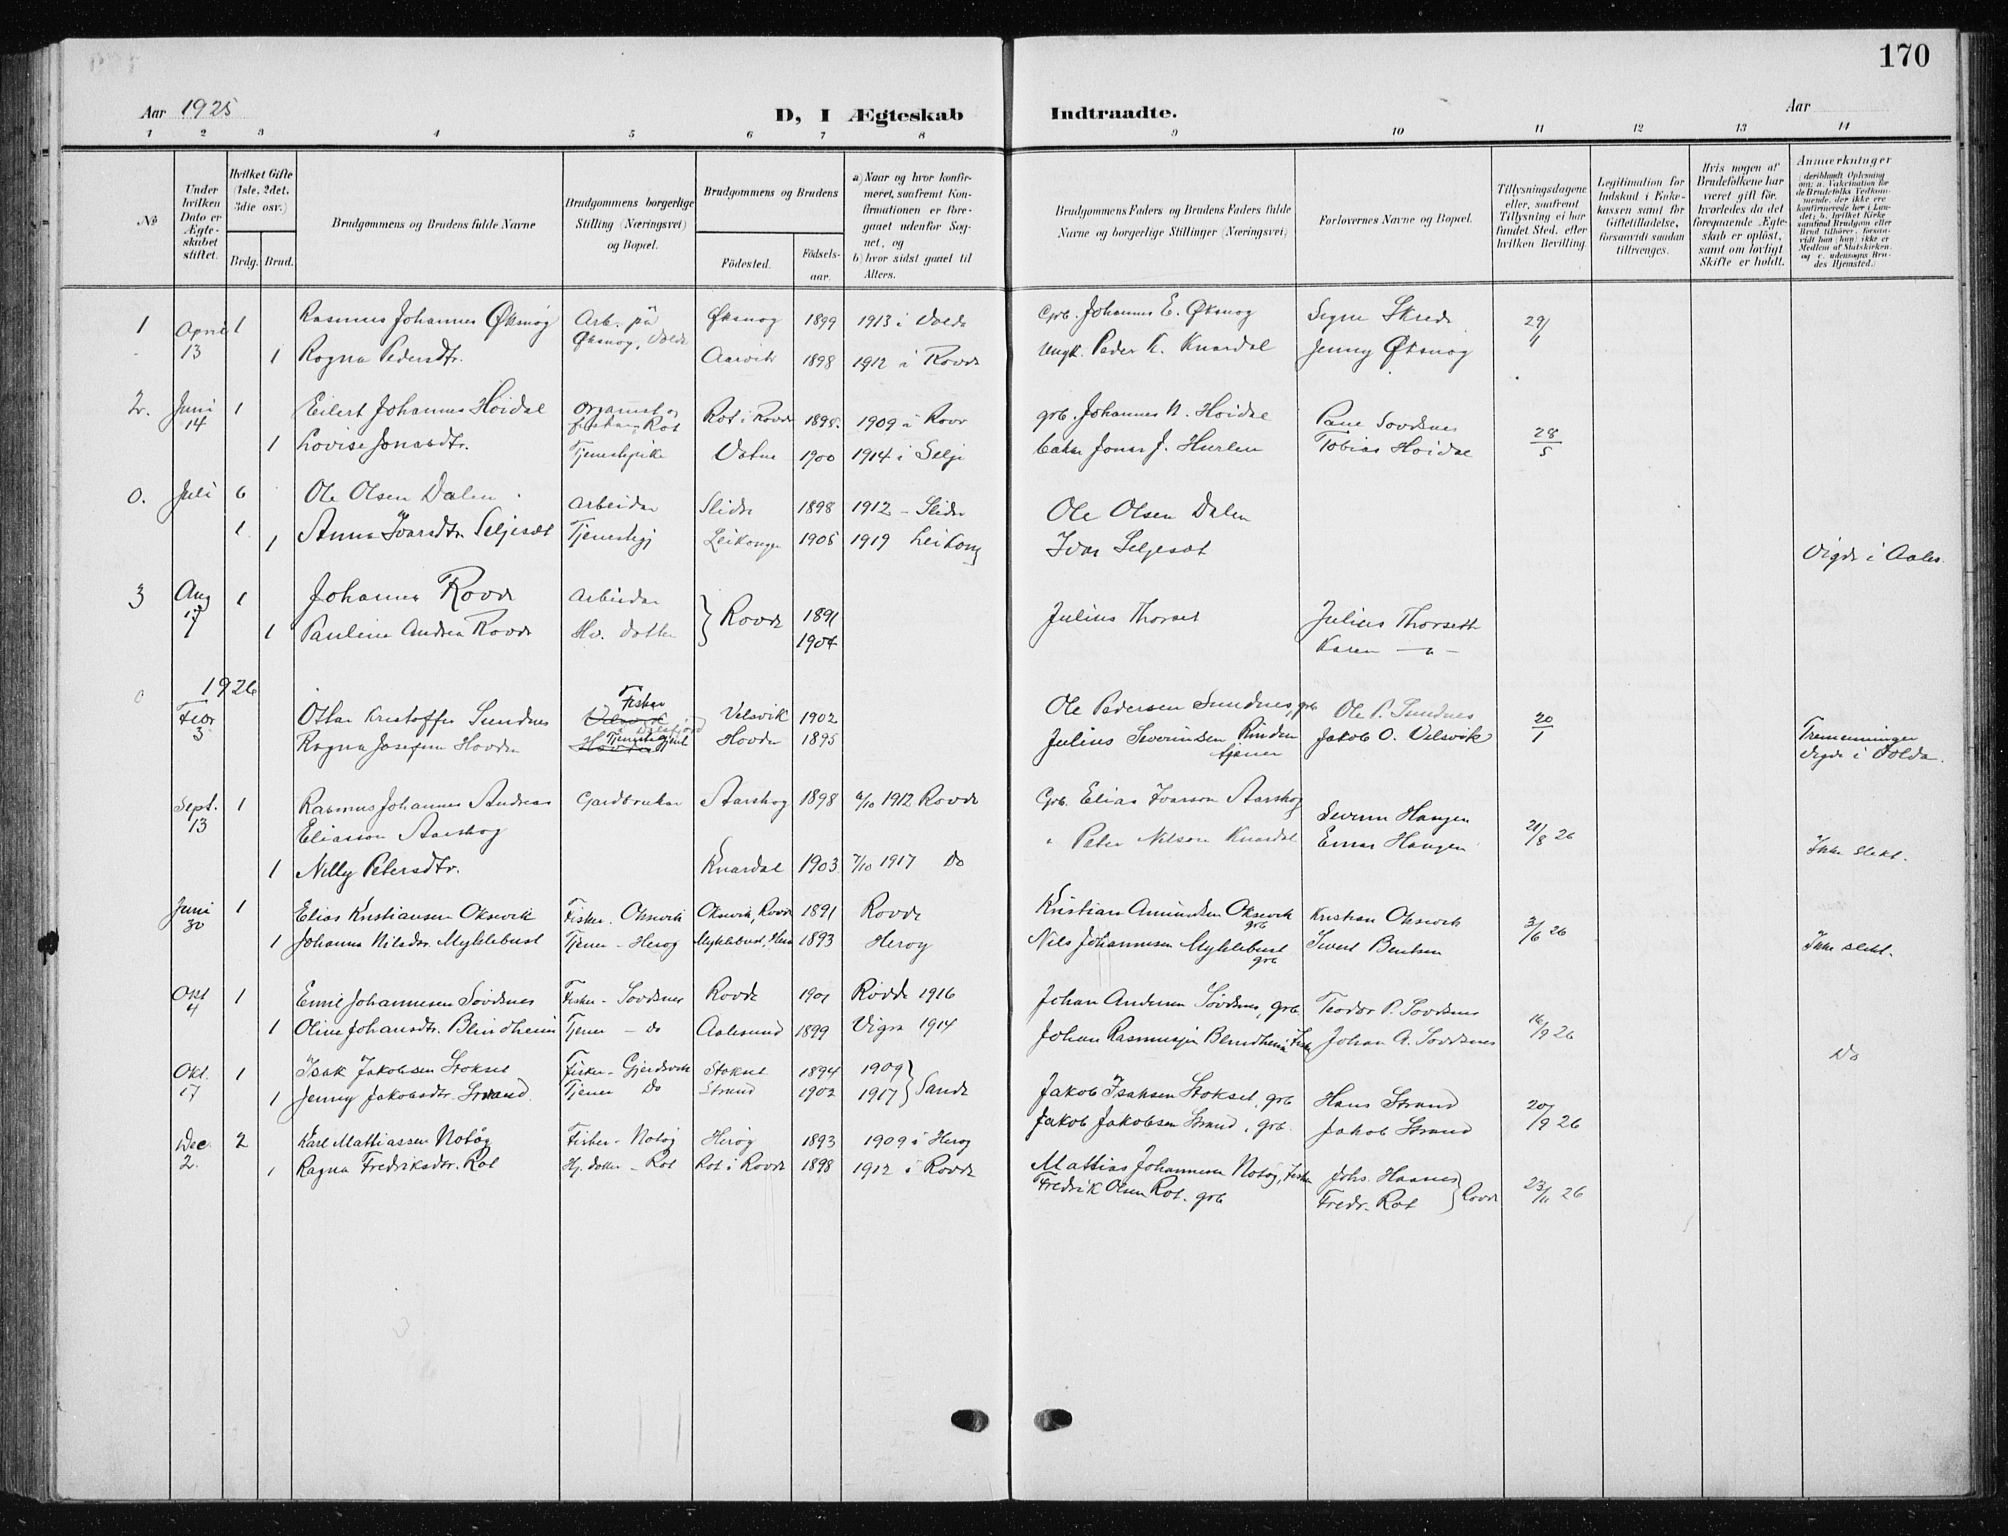 170
Aar 1925
D, I Ægteskab Indtraadte.
Aar
1 2 3 4 5 6 7 8 9 10 11 12 13 14
№
Under hvilken Dato er Ægteskabet stiftet.
Hvilket Gifte (1ste, 2det, 3die osv.)
Brdg. Brud.
Brudgommens og Brudens fulde Navne
Brudgommens borgerlige Stilling (Næringsvei) og Bopæl.
Brudgommens og Brudens
Födested. Födselsaar.
a) Naar og hvor konfirmeret, samfremt Konfirmationen er foregaaet udenfor Sognet, og
b) hvor sidst gaaet til Alters.
Brudgommens Faders og Brudens Faders fulde Navne og borgerlige Stillinger (Næringsvei)
Forlovernes Navne og Bopæl.
Tillysningsdagene eller, samfremt Tillysning ei har fundet Sted, efter hvilken Bevilling.
Legitimation for Indskud i Enkekassen samt for Giftetilladelse, forsaavidt saadan tiltrænges.
Hvis nogen af Brudefolkene har været gift för, hvorledes da det foregaaende Ægteskab er oplöst, samt om lovligt Skifte er holdt.
Anmærkninger
1 April 1 Rasmus Johannes Øksnog Arb. på Øksnog 1899 1913 i Volda Grb. Johannes E. Øksnog Signe Skrede 29/
13 Øksnog, Volda
1 Ragna Pedersdtr. Aarvik 1898 1912 i Rovde Peder K. Knardal Jenny Øksnog 1
2. Juni 1 Eilert Johannes Höidal Organist og Rot i Rovde 1895. 1909 i Rovd grb. Johannes N. Höidal Sovdsnes
14 Rot
1 Lovise Jonasdtr. Tjenestepike Vatne 1900 1914 i Selje Jonas J. Hurlen Tobias Höidal 28/5
0. Juli 6 Ole Olsen Dalen Arbeidar Slidre 1898 1912 - Slidre Ole Olsen Dalen
1
1 Anna Ivarsdtr Seljeset Leikanger 1905 1919 Leikang Ivar Seljeset Vigde i Aales.
3 Aug 1 Johannes Rovde Arbeidar Rovde 1891 Julius Thorset Julius Thorseth
17
1 Pauline Andrea Rovde Hv. dotter 1904 Karen — " —
1926
0 Febr Ottar Kristoffer Sundnes Fisker Velsvik 1902 Ole Pedersen Sundnes, grb Ole P. Sundnes 20/1
3 Ragna Josefine Hovden Hovden 1895 Julius Severinsen Rinden Jakob O. Velsvik Tremenninger
tjener Vigde i Volda.
Sept. 1 Rasmus Johannes Andreas Gardbruker Aarskog 1898 /10 1912 Rovde Grb. Elias Ivarson Aarskog
13 Eliasson Aarskog Severin Haugen 21/8 26
" Peter Nilson Knardal Einar Haugen Ikke slekt.
1 Nelly Petersdtr. Knardal 1903 7/10 1917 Do
Juni 1 Elias Kristiansen Oksevik Fisker - Oksevik Oksevik, Rovde 1891 Rovde Kristian Amundsen Oksevik grb Kristian Oksevik 3/6 26
30 1 Johanna Nilsdtr. Myklebust Tjener - Herøy Myklebust, Herø 1893 Herøy Nils Johannesen Myklebust grb Sivert Bentsen Ikke slekt.
Okt 1 Emil Johannesen Sövdsnes Fisker - Sovdsnes Rovde 1901 Rovde 1916 Johan Andersen Sövdsnes, grb. Teodor P. Sovdsnes
4 1 Oline Johansdtr. Blindheim Tjener - do Aalesund 1899 Vigra 1914 Johan Rasmussen Blindheim, Fisker Johan A. Sovdsnes 16/9 26
Do
Okt. 1 Isak Jakobsen Stokset Fisker - Gjerdsvik Stokset 1894 1909 } Sande Jakob Isaksen Stokset, grb Hans Strand 20/9 26
17 1 Jenny Jakobsdtr. Strand Tjener Do Strand 1902 1917 Jakob Jakobsen Strand, grb. Jakob Strand
Dec 2 Karl Mattiassen Notøy Fisker - Notøy Herøy 1893 1909 i Herøy Mattias Johannesen Notøy, Fisker Johs. Haanes } Rovde 23/11 26
2. 1 Ragna Fredriksdtr. Rot Hj. dotter - Rot Rot i Rovde 1898 1912 i Rovde Fredrik Olsen Rot. grb Fredr. Rot